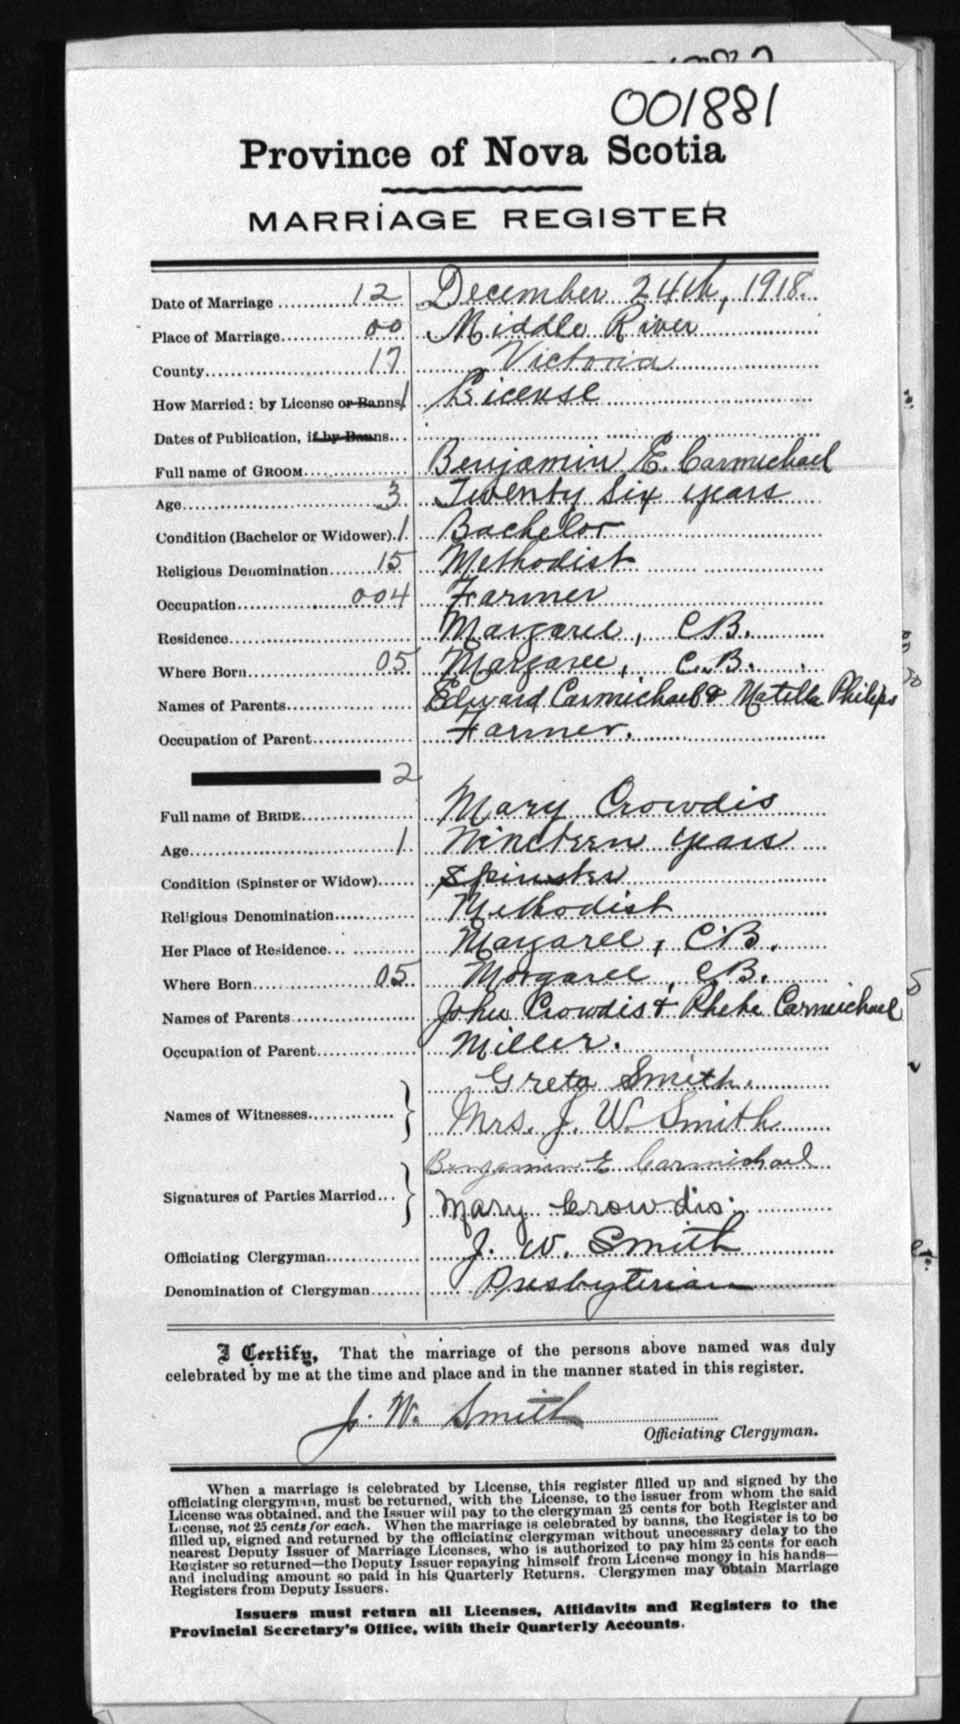 001881
Province of Nova Scotia
MARRIAGE REGISTER
Date of Marriage 12 December 24th, 1918.
Place of Marriage 00 Middle River
County 17 Victoria
How Married: by License or Banns 1 License
Dates of Publication, if by Banns
Full name of GROOM Benjamin E. Carmichael
Age 3 Twenty Six years
Condition (Bachelor or Widower). 1 Bachelor
Religious Denomination 15 Methodist
Occupation 004 Farmer
Residence Margaree, C.B.
Where Born 05 Margaree, C.B.
Names of Parents Edward Carmichael & Matilla Philips
Occupation of Parent Farmer.
2
Full name of BRIDE Mary Crowdis
Age 1 Nineteen years
Condition (Spinster or Widow) Spinster
Religious Denomination Methodist
Her Place of Residence Margaree, C.B.
Where Born 05 Margaree, C.B.
Names of Parents John Crowdis & Phebe Carmichael
Occupation of Parent Miller.
Greta Smith.
Names of Witnesses Mrs. J. W. Smith
Benjamin E Carmichael
Signatures of Parties Married Mary Crowdis.
Officiating Clergyman J. W. Smith
Denomination of Clergyman Presbyterian
I Certify, That the marriage of the persons above named was duly
celebrated by me at the time and place and in the manner stated in this register.
J. W. Smith
Officiating Clergyman.
When a marriage is celebrated by License, this register filled up and signed by the
officiating clergyman, must be returned, with the License, to the issuer from whom the said
License was obtained, and the Issuer will pay to the clergyman 25 cents for both Register and
License, not 25 cents for each. When the marriage is celebrated by banns, the Register is to be
filled up, signed and returned by the officiating clergyman without unnecessary delay to the
nearest Deputy Issuer of Marriage Licenses, who is authorized to pay him 25 cents for each
Register so returned—the Deputy Issuer repaying himself from License money in his hands—
and including amount so paid in his Quarterly Returns. Clergymen may obtain Marriage
Registers from Deputy Issuers.
Issuers must return all Licenses, Affidavits and Registers to the
Provincial Secretary's Office, with their Quarterly Accounts.